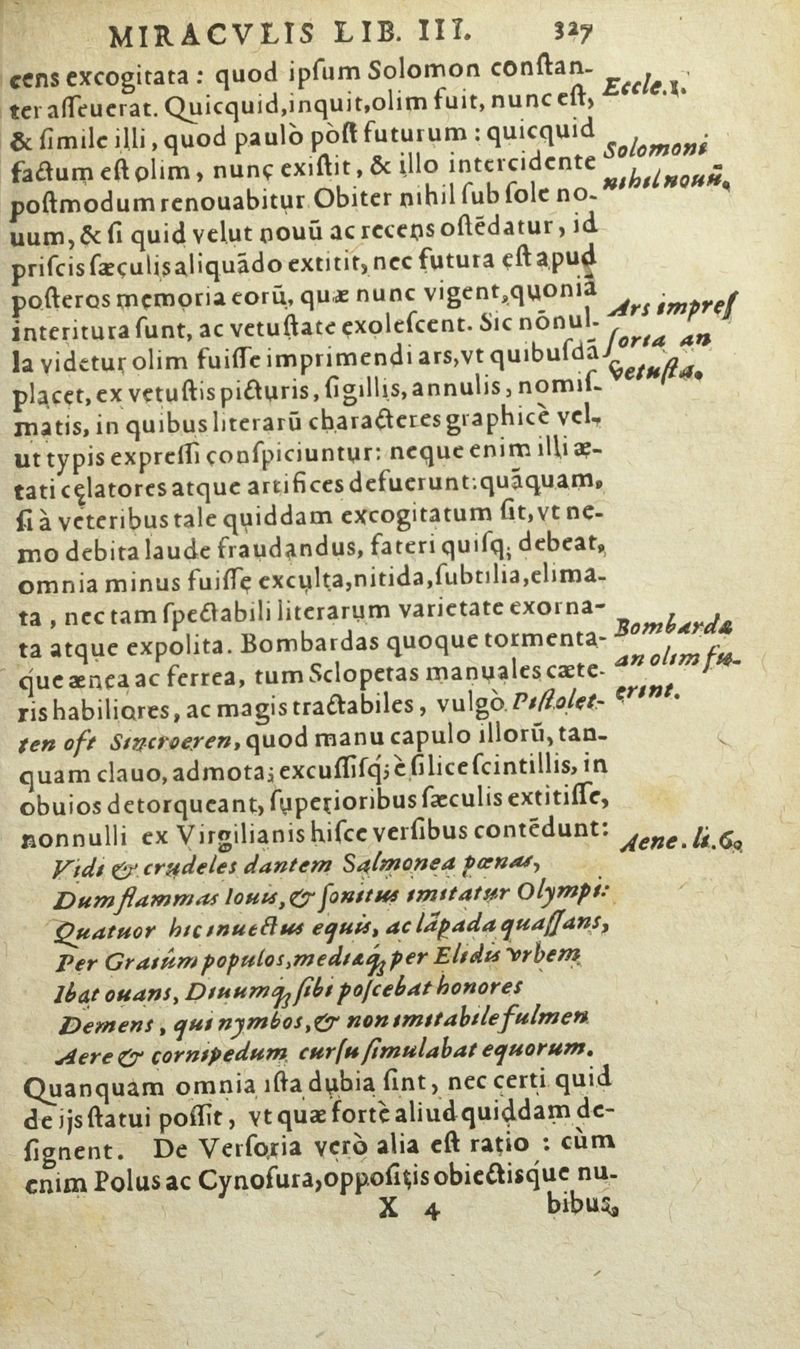 MIRACVLIS LIB. III. 327
cens excogitata : quod ipſum Solomon conſtan-
ter aſſeuerat. Quicquid,inquit,olim fuit, nunc eſt,
Eccle.1.
& ſimile illi, quod paulò pòſt futurum : quicquid
factum eſt olim, nunc exiſtit, & illo intercidente
Solomoni
nihil nouū.
poſtmodum renouabitur Obiter nihil ſub ſole no-
uum, & ſi quid velut nouū ac recens oſtēdatur, id
priſcis ſæculis aliquādo extitit, nec futura eſt apud
poſteros memoria eorū, quæ nunc vigent,quoniā
interitura ſunt, ac vetuſtate exoleſcent. Sic nonul-
Ars impreſ
ſoria an
vetuſta.
la videtur olim fuiſſe imprimendi ars,vt quibuſdā
placet, ex vetuſtis picturis, ſigillis, annulis, nomiſ-
matis, in quibus literarū characteres graphicè vel
ut typis expreſſi conſpiciuntur: neque enim illi æ-
tati cęlatores atque artifices defuerunt:quāquam,
ſi à veteribus tale quiddam excogitatum ſit, vt ne-
mo debita laude fraudandus, fateri quiſq; debeat,
omnia minus fuiſſe exculta,nitida,ſubtilia,elima-
ta , nec tam ſpectabili literarum varietate exorna-
ta atque expolita. Bombardas quoque tormenta-
Bombardæ
an olim fu-
erint.
que ænea ac ferrea, tum Sclopetas manuales cæte-
ris habiliores, ac magis tractabiles, vulgò Piſtolet-
ten oft Sincroeren, quod manu capulo illorū, tan-
quam clauo, admota; excuſſiſq; è ſilice ſcintillis, in
obuios detorqueant, ſuperioribus ſæculis extitiſſe,
nonnulli ex Virgilianis hiſce verſibus contēdunt:
Aene. li.6.
Vidi & crudeles dantem Salmonea pœnas,
Dum flammas Iouis, & ſonitus imitatur Olympi:
Quatuor hic inuectus equis, ac lāpada quaſſans,
Per Graiûm populos, mediæq; per Elidis vrbem
Ibat ouans, Diuumq; ſibi poſcebat honores
Demens, qui nymbos, & non imitabile fulmen
Aere & cornipedum curſu ſimulabat equorum.
Quanquam omnia iſta dubia ſint, nec certi quid
de ijs ſtatui poſſit, vt quæ fortè aliud quiddam de-
ſignent. De Verſoria verò alia eſt ratio : cùm
enim Polus ac Cynoſura,oppoſitis obiectisque nu-
X 4 bibus,